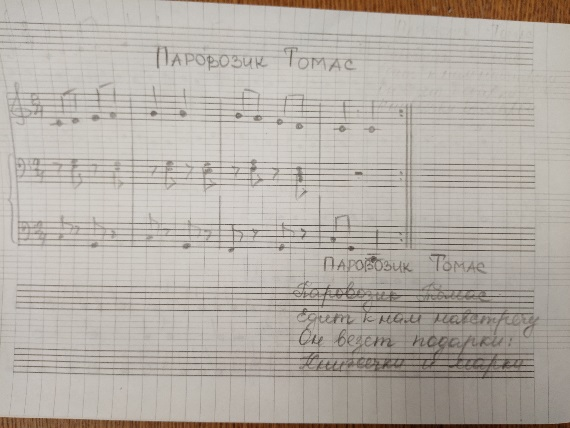 Паровозик Томас
Паровозик Томас
Паровозик Томас
Едет к нам навстречу
Он везёт подарки:
Книжечки и марки